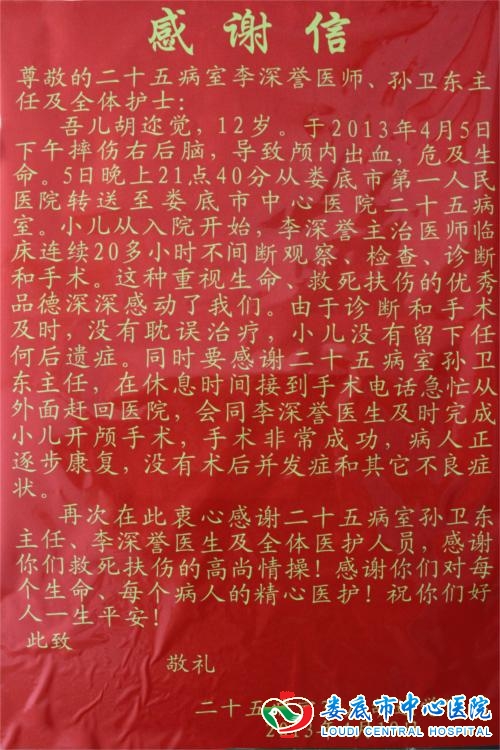 感谢信
尊敬的二十五病室李深誉医师、孙卫东主
任及全体护士：
吾儿胡迩觉，12岁。于2013年4月5日
下午摔伤右后脑，导致颅内出血，危及生
命。5日晚上21点40分从娄底市第一人民
医院转送至娄底市中心医院二十五病
室。小儿从入院开始，李深誉主治医师临
床连续20多小时不间断观察、检查、诊断
和手术。这种重视生命、救死扶伤的优秀
品德深深感动了我们。由于诊断和手术
及时，没有耽误治疗，小儿没有留下任
何后遗症。同时要感谢二十五病室孙卫
东主任，在休息时间接到手术电话急忙从
外面赶回医院，会同李深誉医生及时完成
小儿开颅手术，手术非常成功，病人正
逐步康复，没有术后并发症和其它不良症
状。
再次在此衷心感谢二十五病室孙卫东
主任、李深誉医生及全体医护人员，感谢
你们救死扶伤的高尚情操！感谢你们对每
个生命、每个病人的精心医护！祝你们好
人一生平安！
此致
敬礼
二十五病
2013年
娄底市中心医院
LOUDI CENTRAL HOSPITAL